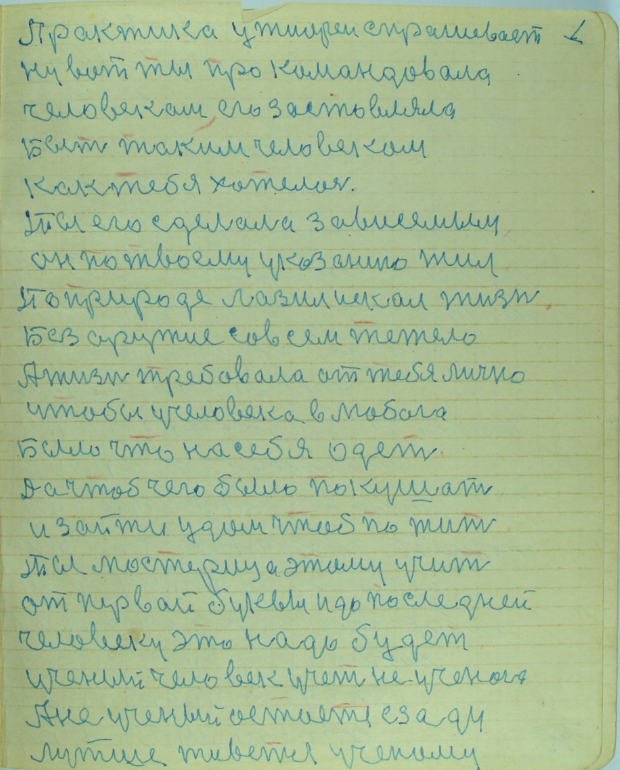 Практика у тиореи спрашевает
ну вот ты про командовала
человеком его застовляла
Быт таким человеком
как тебя хотелоя.
Ты его сделала зависемым
он потвоему указанию жил
По природе лазил искал жизн
Без оружие совсем тежело
А жизн требовала от тебя лично
чтобы у человека в любога
Было что на себя одет
Да чтоб чего было покушат
и зайти у дом чтоб по жит
Ты мостерица этому учит
от первай буквы идо последней
человеку это надо будет
ученый человек учет не ученога
А не ученый остоется сзаду
лутше живется ученому